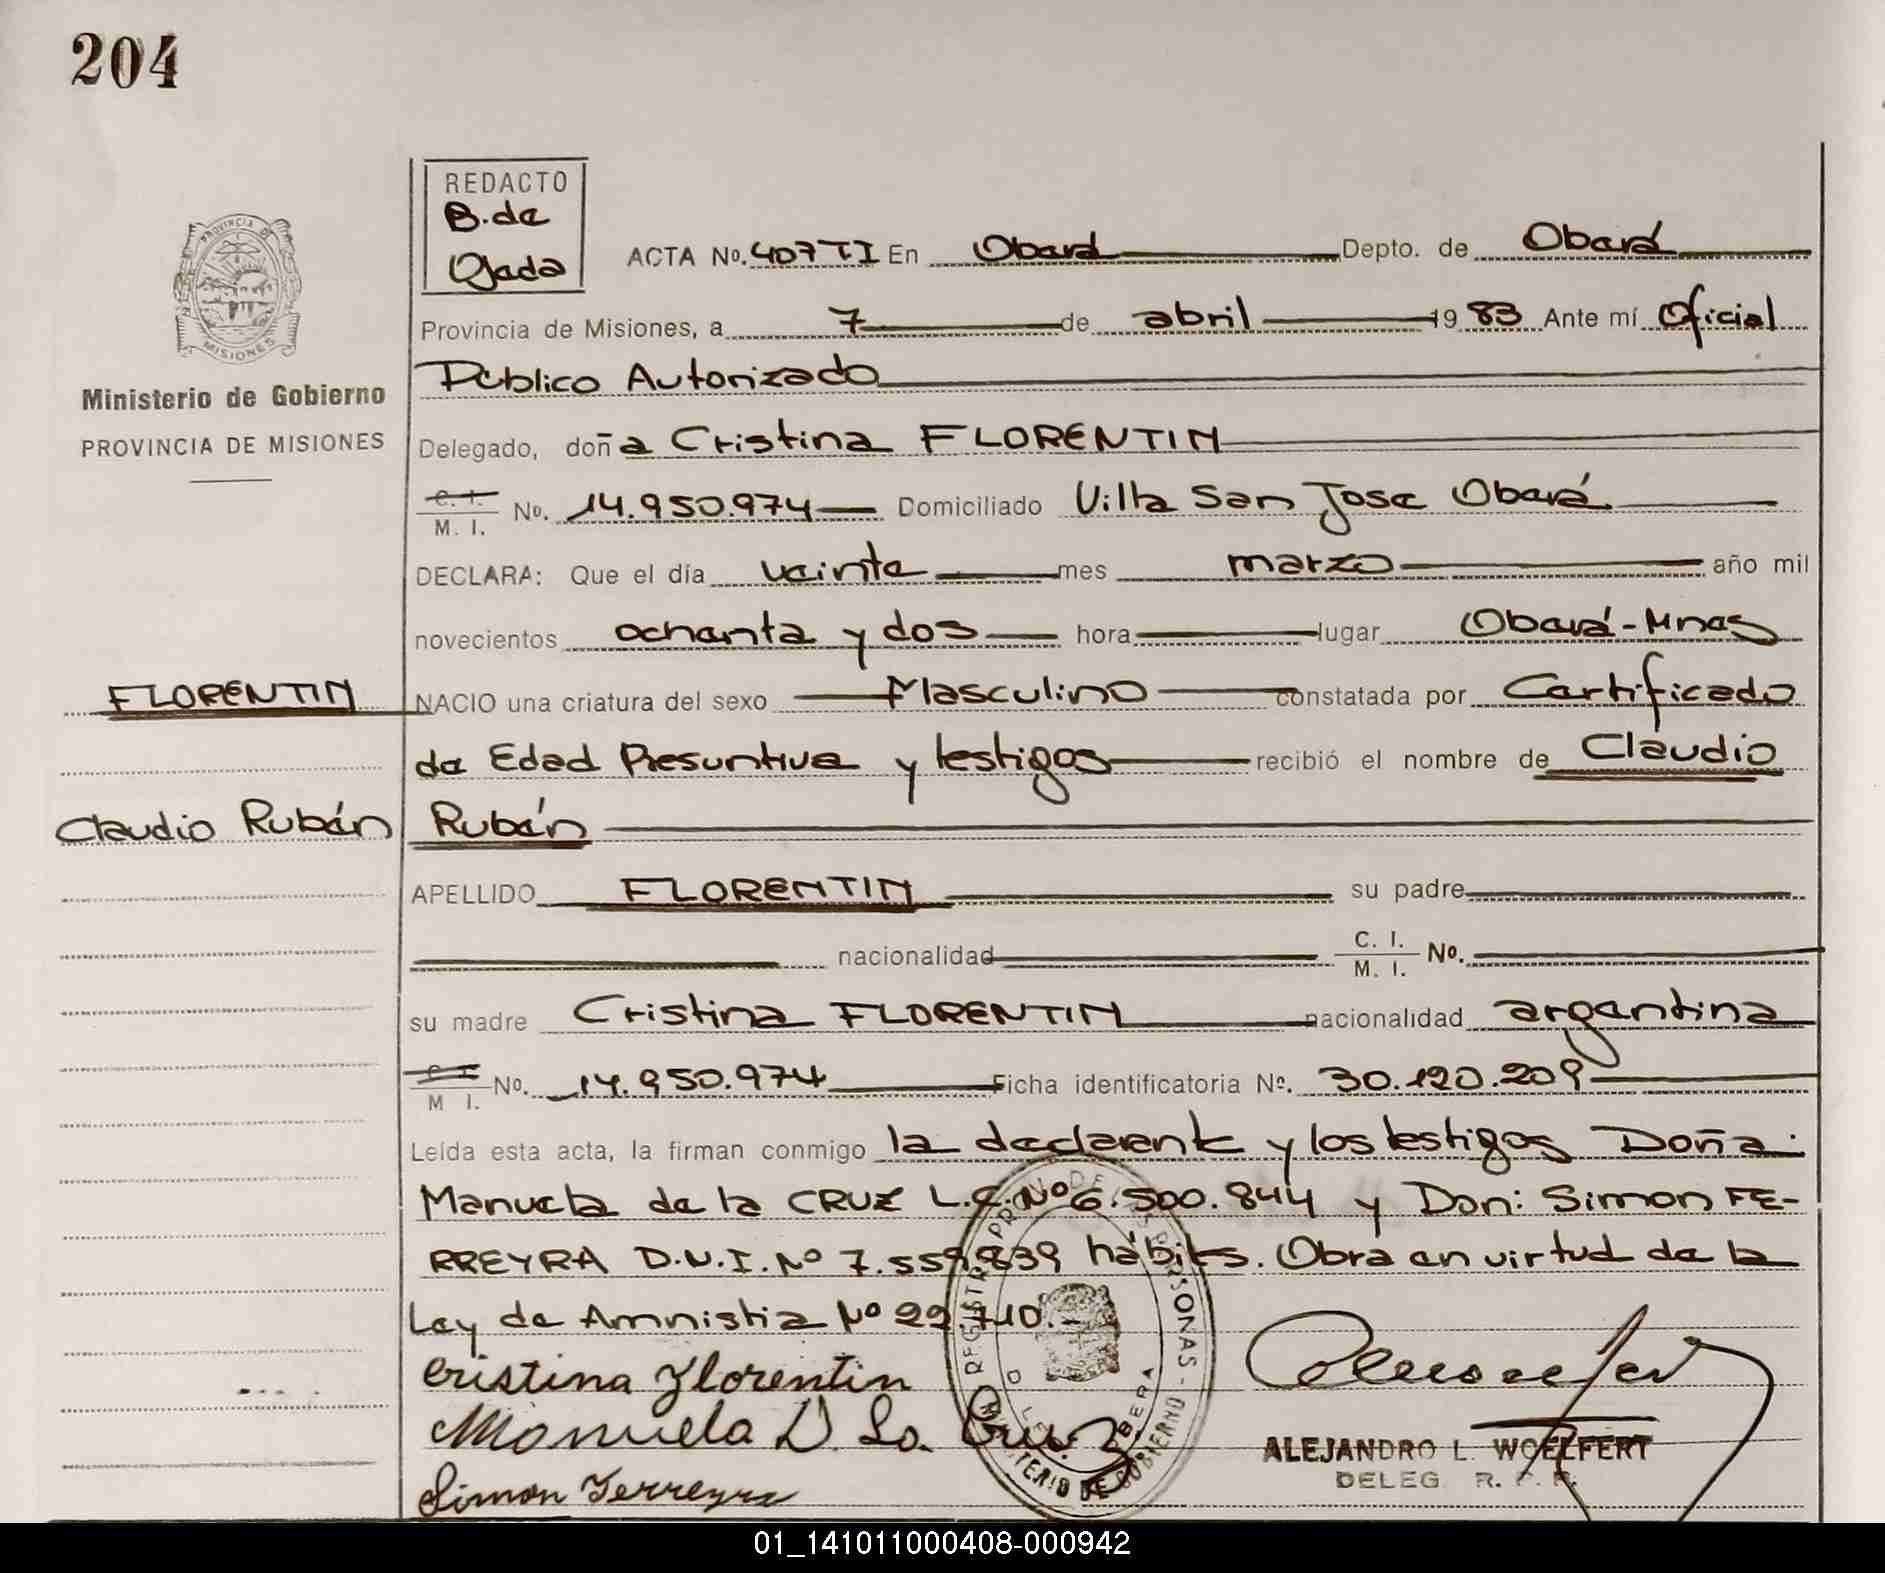 204
REDACTO
B. de
Ojeda
ACTA No. 407 TI En Oberá Depto. de Oberá
Provincia de Misiones, a 7 de abril 1983 Ante mí Oficial
Público Autorizado
Ministerio de Gobierno
PROVINCIA DE MISIONES
Delegado, doña Cristina FLORENTIN
C. I.
M. I. No. 14.950.974 Domiciliado Villa San Jose Oberá
DECLARA: Que el día veinte mes marzo año mil
novecientos ochenta y dos hora lugar Oberá-Mnes
FLORENTIN
NACIO una criatura del sexo Masculino constatada por Certificado
de Edad Presuntiva y testigos recibió el nombre de Claudio
Claudio Rubén
Rubén
APELLIDO FLORENTIN su padre
nacionalidad C. I. M. I. No.
su madre Cristina FLORENTIN nacionalidad argentina
C. I.
M. I. No. 14.950.974 Ficha identificatoria Nº. 30.120.209
Leída esta acta, la firman conmigo la declarante y los testigos Doña:
Manuela de la CRUZ L.C. Nº 6.500.844 y Don: Simon FE-
RREYRA D.N.I. Nº 7.559.839 hábiles. Obra en virtud de la
Ley de Amnistia Nº 22.710.-
Cristina Florentin
Manuela D. La Cruz
Simon Ferreyra
ALEJANDRO L. WOELFERT
DELEG. R. P. P.
PROVINCIA DE MISIONES
REGISTRO PROV. DE LAS PERSONAS - MINISTERIO DE GOBIERNO
01_141011000408-000942